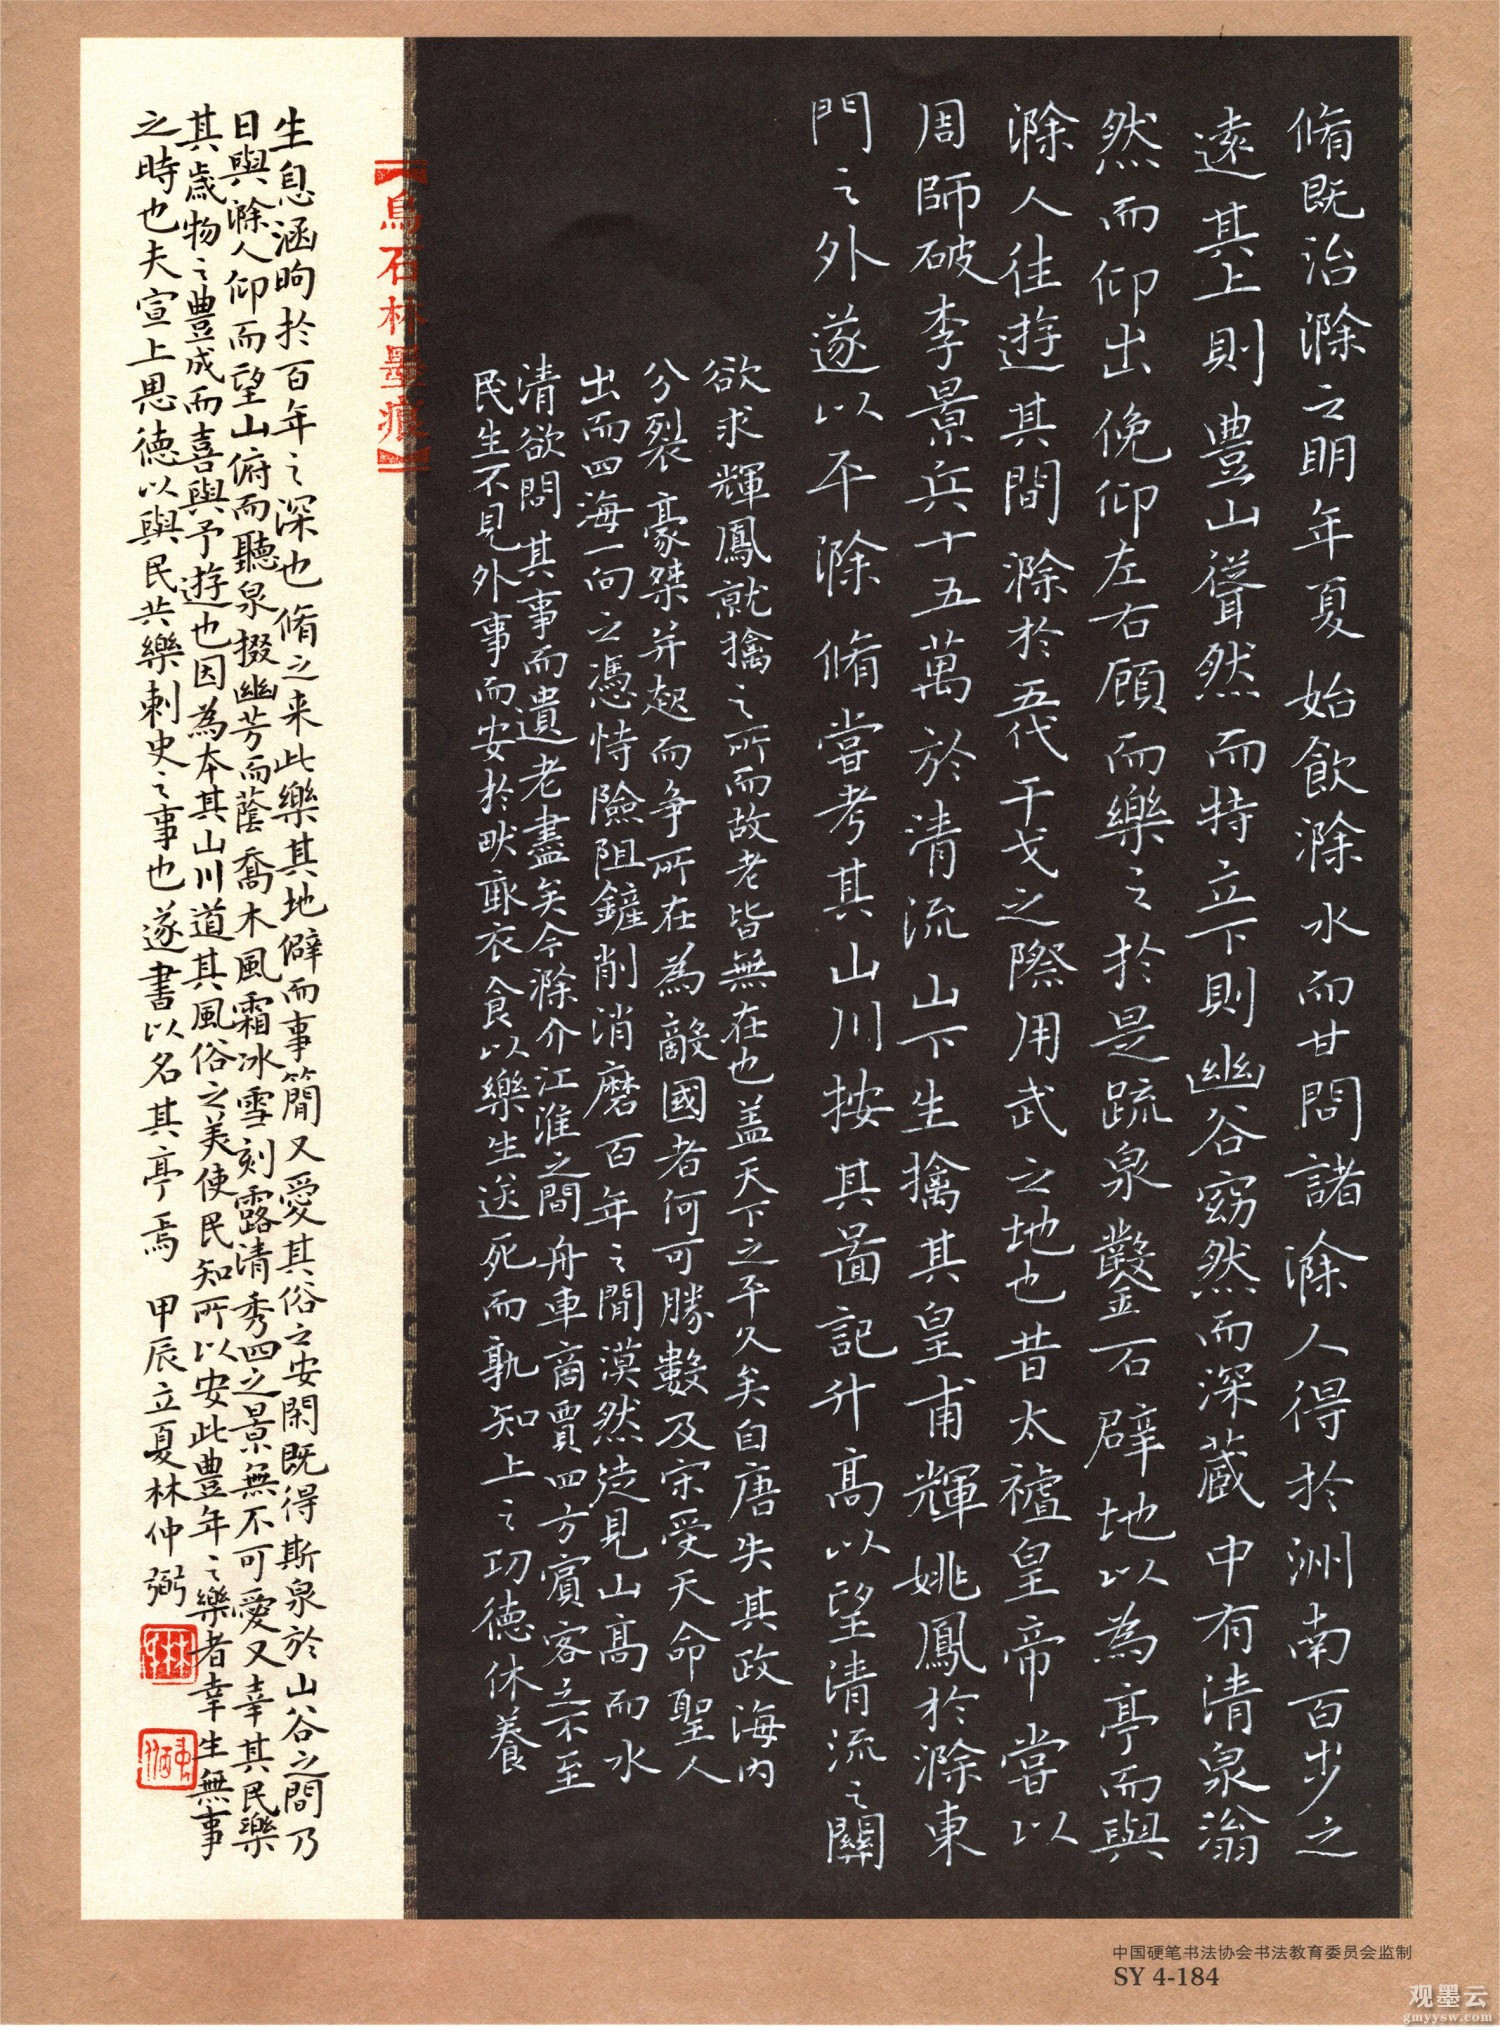 脩既治滁之明年夏始飲滁水而甘問諸滁人得於洲南百步之
遠其上則豊山聳然而特立下則幽谷窈然而深蔵中有清泉滃
然而仰出俛仰左右顧而樂之於是疏泉鑿石辟地以為亭而與
滁人往遊其間滁於五代干戈之際用武之地也昔太祖皇帝嘗以
周師破李景兵十五萬於清流山下生擒其皇甫輝姚鳳於滁東
門之外遂以平滁脩嘗考其山川按其圖記升高以望清流之關
欲求輝鳳就擒之所而故老皆無在也盖天下之平久矣自唐失其政海内
分裂豪桀并起而争所在為敵國者何可勝數及宋受天命聖人
出而四海一向之憑恃險阻鏟削消磨百年之間漠然徒見山高而水
清欲問其事而遺老盡矣今滁介江淮之間舟車商賈四方賓客之不至
民生不見外事而安於畎畝衣食以樂生送死而孰知上之功德休養
【烏石林墨痕】
生息涵煦於百年之深也脩之来此樂其地僻而事簡又愛其俗之安閑既得斯泉於山谷之間乃
日與滁人仰而望山俯而聽泉掇幽芳而蔭喬木風霜冰雪刻露清秀四之景無不可愛又幸其民樂
其歲物之豊成而喜與予遊也因為本其山川道其風俗之美使民知所以安此豊年之樂者幸生無事
之時也夫宣上恩德以與民共樂刺史之事也遂書以名其亭焉 甲辰立夏林仲弼
中国硬笔书法协会书法教育委员会监制
SY 4-184
观墨云
gmyysw.com